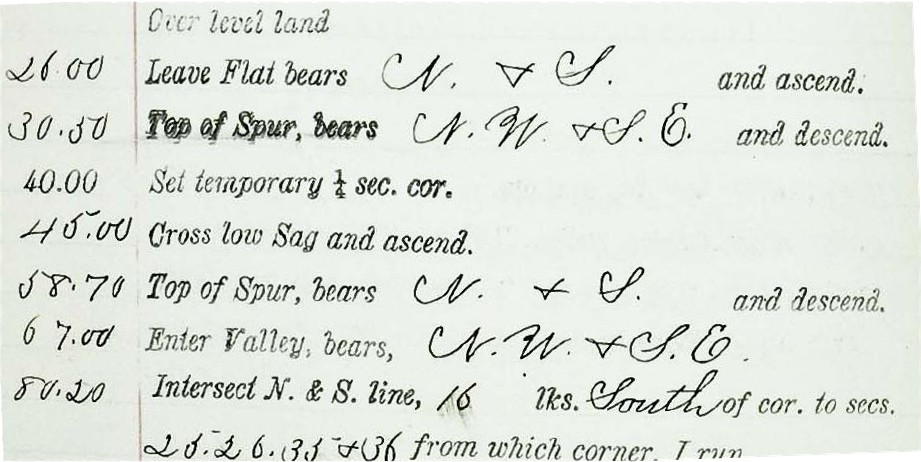 Over level land
26.00 Leave Flat bears N. & S. and ascend.
30.50 Top of Spur, bears N. W. & S. E. and descend.
40.00 Set temporary ¼ sec. cor.
45.00 Cross low Sag and ascend.
58.70 Top of Spur, bears N. & S. and descend.
67.00 Enter Valley, bears, N. W. & S. E.
80.20 Intersect N. & S. line, 16 lks. South of cor. to secs.
25. 26. 35 & 36 from which corner, I run